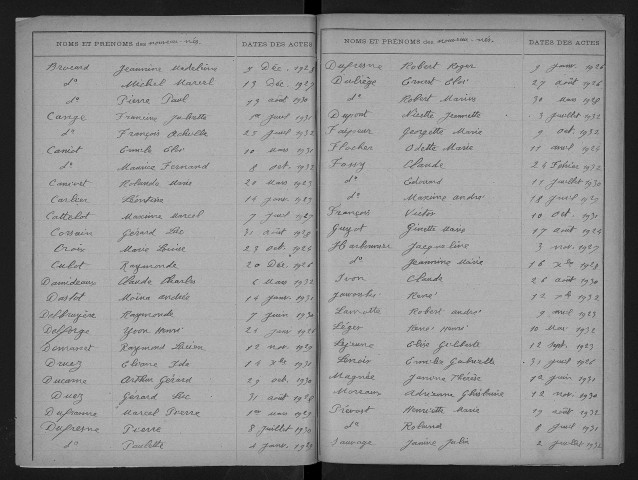 NOMS ET PRÉNOMS des nouveau-nés. DATES DES ACTES
Brocard Jeannine Madeleine 9 Déc. 1928
do Michel Marcel 13 Déc. 1927
do Pierre Paul 19 août 1930
Cange Juliette 1er juil 1931
do François 25 juin 1932
Caniot Camille Eloi 10 mars 1930
do Maurice Fernand 8 oct. 1932
Canivet Rolande Marie 20 mars 1923
Carlier Léontine 14 janv.
Cattelot Maxime Marcel 7 juil 1927
Corsain Gérard Luc 31 août 1928
Croix Marie Louise 23 oct. 1924
Culot Raymonde 20 Déc. 1926
Claude Charles 6 mars 1932
Daslot 14 janv. 1931
Delbruyère Raymonde 7 juin 1930
Delforge Yvon Henri 21 janv 1926
Demanet Raymond Lucien 12 nov. 1929
Druez Elvane Ida 11 Xbre 1931
Ducarne Arthur Gérard 29 oct. 1930
Duez Gérard Luc 31 août 1928
Dufranne Marcel Pierre 1er mars 1929
Dufresne Pierre 8 juillet 1930
do Paulette 2 janv. 1929
NOMS ET PRÉNOMS des nouveau-nés. DATES DES ACTES
Dufresne Robert Roger 9 janv. 1926
Duliège Ernest Eloi 27 août 1926
do Robert Marius 30 mars 1928
Dupont Nicette Jeannette 3 juillet 1932
Georgette Marie 9 oct. 1932
Flocher Odette Marie 11 avril 1924
Fossy Claude 24 Février 1932
do Edouard 11 juillet 1930
do Maxime André 18 juil
François Victor 10 oct. 1931
Guyot Ginette Marie 17 août 1924
Jacqueline 3 nov. 1927
do Jeannine Marie 16 Xbre 1928
Ivon Claude 26 août 1930
René 12 Xbre 1932
Lamotte Robert André 9 avril 1923
Léger René Henri 10 mai 1932
Lejeune Elise Gilberte 12 sept. 1923
Lenoir Camille Gabrielle 31 juil 1926
Magnée Janine Thérèse 12 juin 1931
Moreaux Adrienne Ghislaine 12 nov. 1930
Prévost Henriette Marie 19 août 1932
do Roland 8 juil 1931
Sauvage Janine Julia 2 juillet 1932